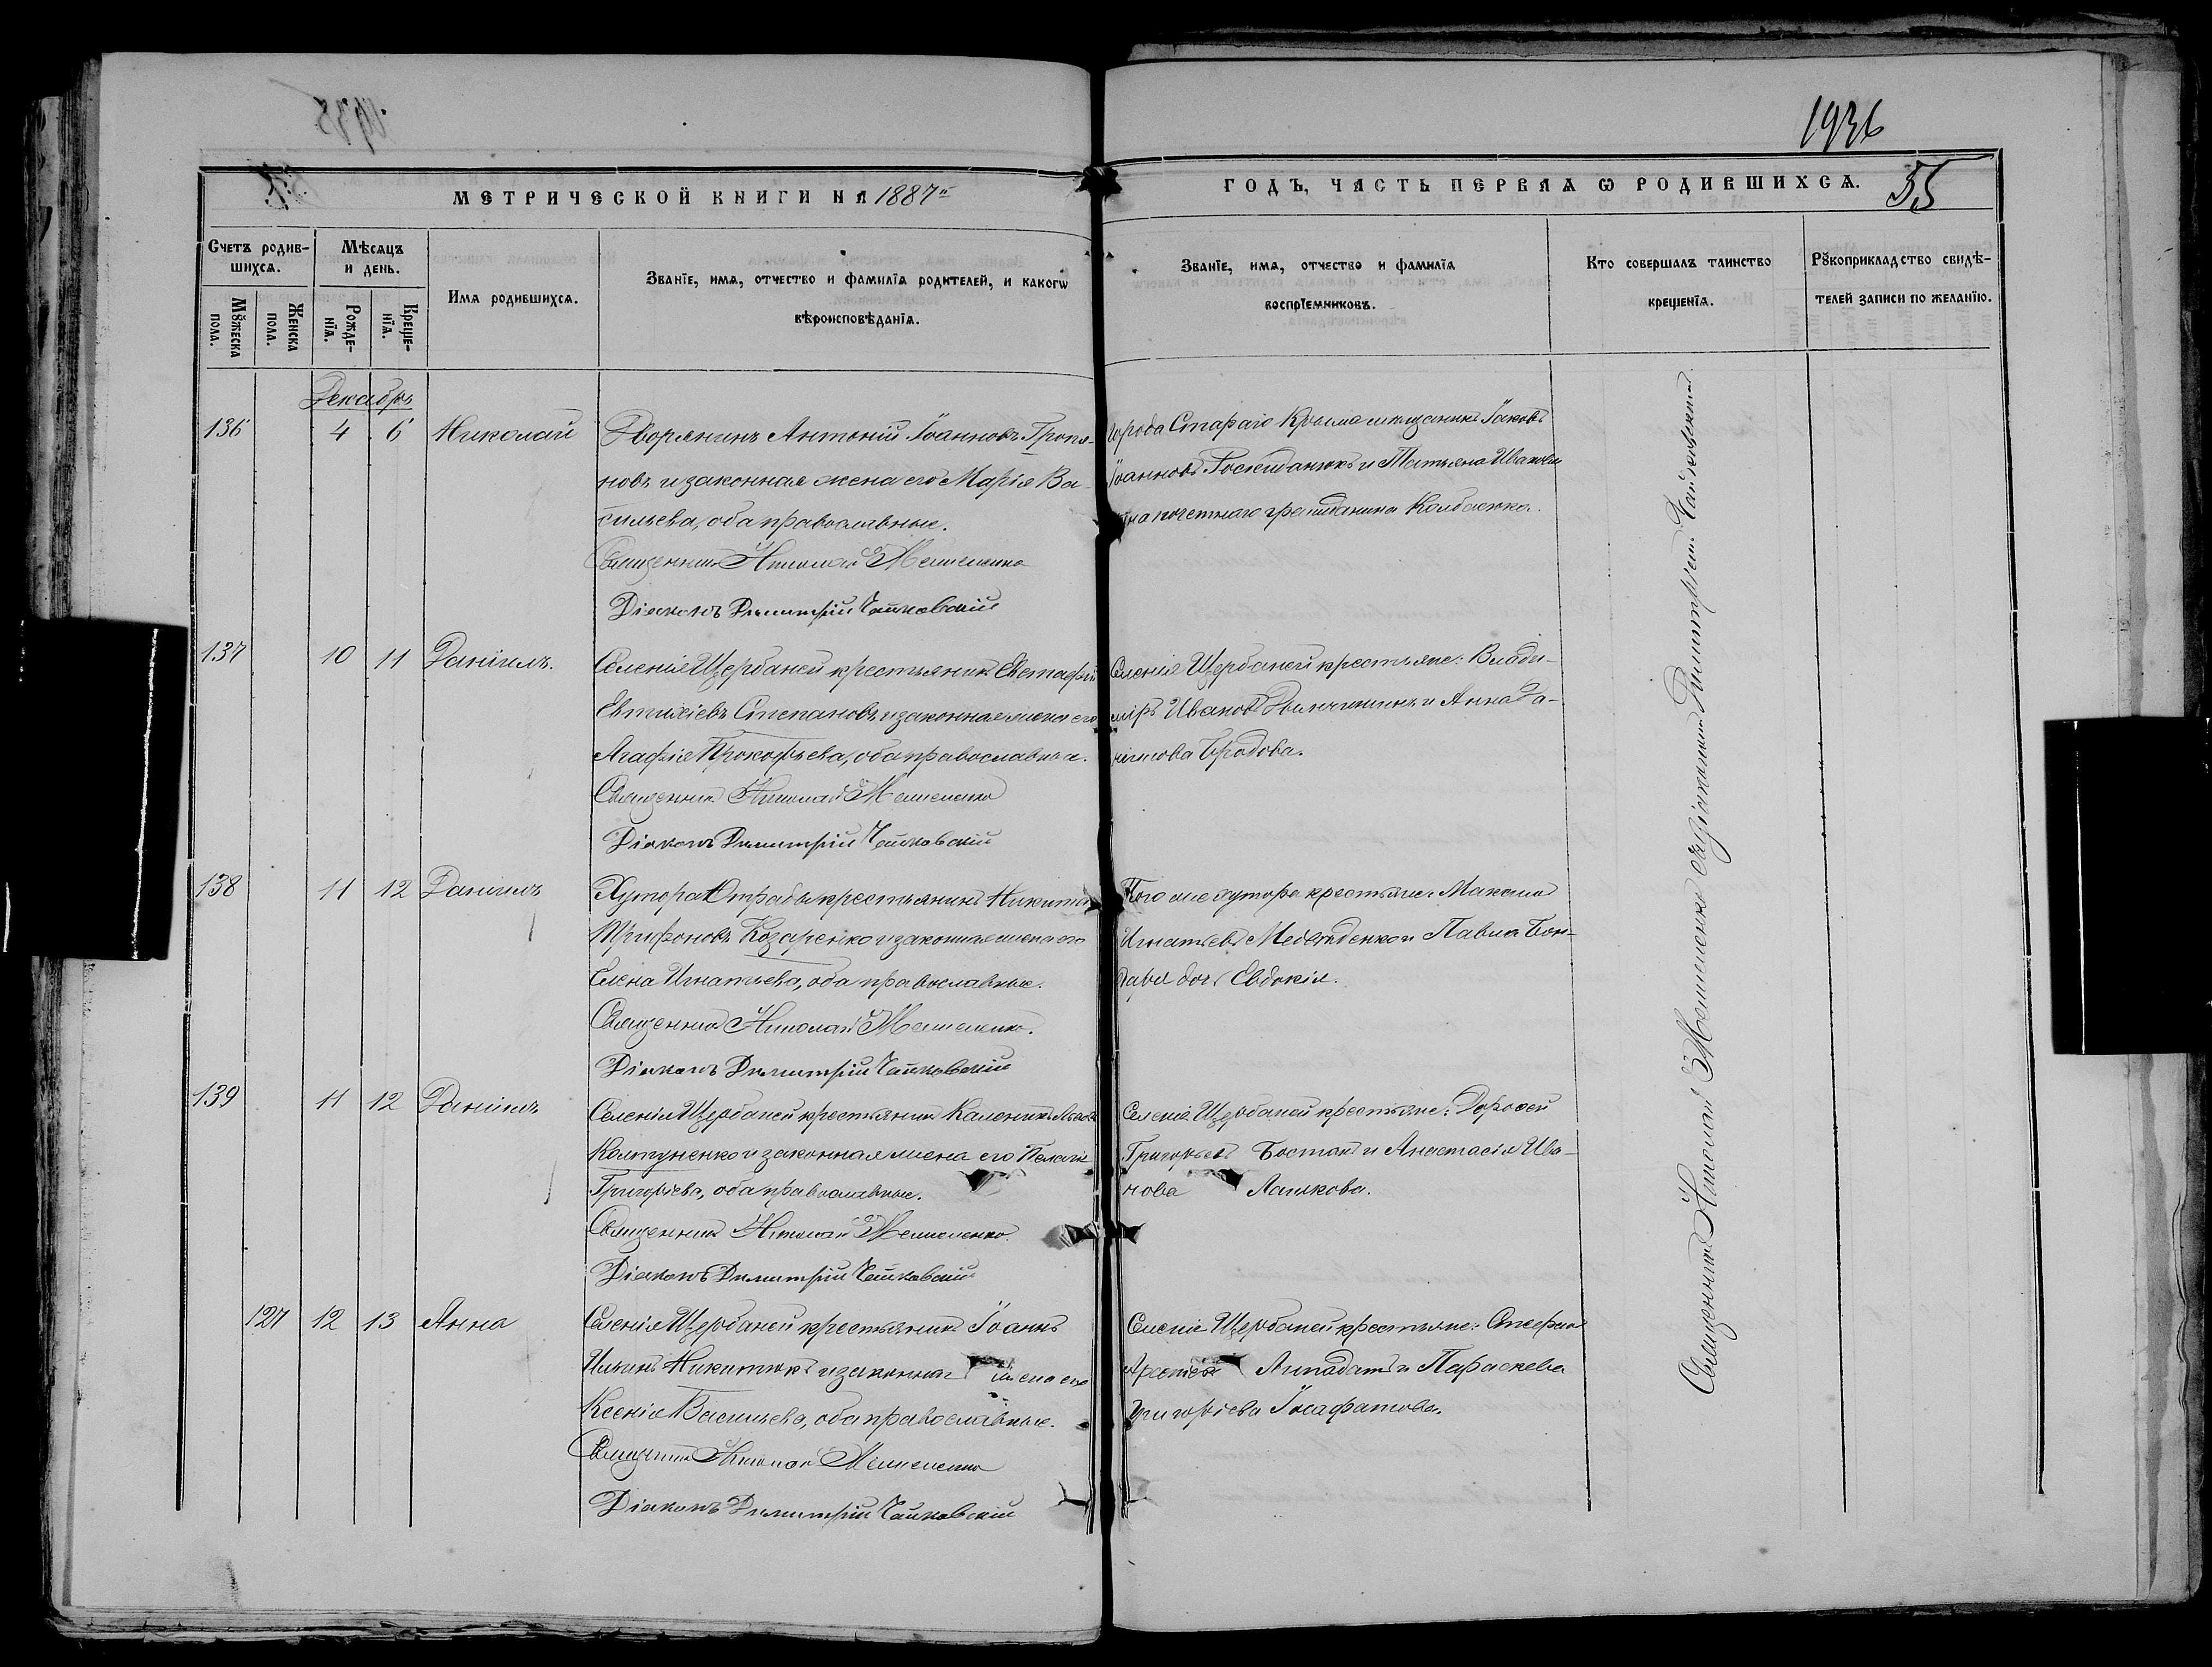 1936
МЕТРИЧЕСКОЙ КНИГИ НА 1887й
ГОДЪ, ЧАСТЬ ПЕРВАЯ Ѡ РОДИВШИХСѦ.
55
Счетъ родив-
шихсѧ.
Мѣсѧцъ
и день.
Мȣжеска
пола.
Женска
пола.
Рожде-
нїѧ.
Креще-
нїѧ.
Имѧ родившихсѧ.
Званїе, имѧ, отчество и фамилїѧ родителей, и какогѡ
вѣроисповѣданїѧ.
Званїе, имѧ, отчество и фамилїѧ
воспрїемниковъ.
Кто совершалъ таинство
крещенїѧ.
Рȣкоприкладство свидѣ-
телей записи по желанїю.
Декабрь
136 4 6 Николай
Дворянинъ Антоній Іоанновъ Тропя-
новъ и законная жена его Марія Ва-
сильева, оба православные.
Священникъ Николай Мешененко
Діаконъ Димитрій Чайковскій
города Стараго Крыма мещанинъ Іаковъ
Іоанновъ и Татьяна Иванова
почетнаго гражданина
137 10 11 Даніилъ.
Селенія Щербаней крестьянинъ Евстафій
Евтихіевъ Степановъ и законная жена его
Агафія Прокофьева, оба православные.
Священникъ Николай Мешененко
Діаконъ Димитрій Чайковскій
Селенія Щербаней крестьяне: Влади-
міръ Ивановъ и Анна Да-
ніилова Бродова.
138 11 12 Даніилъ
Хутора Отрады крестьянинъ Никита
Трифоновъ Козаренко и законная жена его
Елена Игнатьева, оба православные.
Священникъ Николай Мешененко.
Діаконъ Димитрій Чайковскій
Того же хутора крестьяне: Максимъ
Игнатьевъ Медведенко и Павла Бон-
даря дочь Евдокія.
139 11 12 Даніилъ
Селенія Щербаней крестьянинъ Каленикъ
Колтуненко и законная жена его Пелагія
Григорьева, оба православные.
Священникъ Николай Мешененко.
Діаконъ Димитрій Чайковскій
Селенія Щербаней крестьяне: Дорофей
Григорьевъ Бостанъ и Анастасія Ива-
нова Лашкова.
127 12 13 Анна
Селенія Щербаней крестьянинъ Іоаннъ
Ильинъ Никитюкъ и законная жена его
Ксенія Васильева, оба православные.
Священникъ Николай Мешененко
Діаконъ Димитрій Чайковскій
Селенія Щербаней крестьяне: Стефанъ
и Параскева
Григорьева Іосафатова.
Священникъ Николай Мешененко съ діакономъ Димитріемъ Чайковскимъ